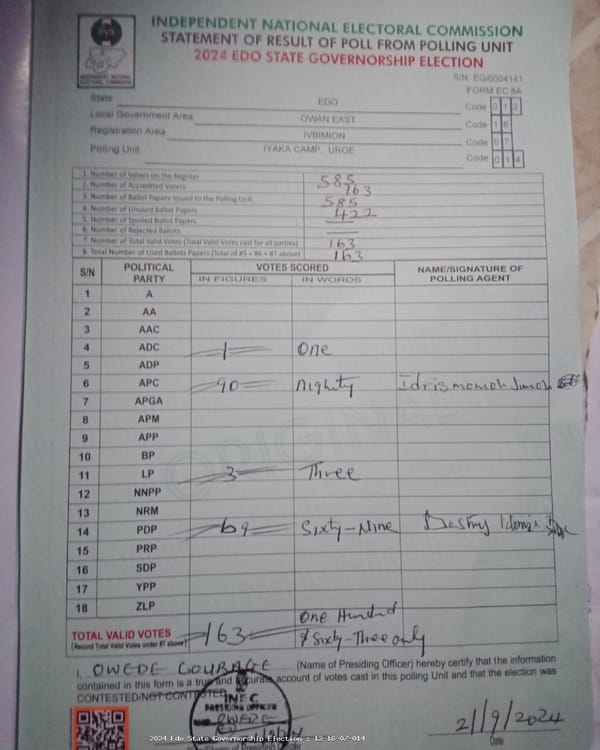 INDEPENDENT NATIONAL ELECTORAL COMMISSION
STATEMENT OF RESULT OF POLL FROM POLLING UNIT
2024 EDO STATE GOVERNORSHIP ELECTION
S/N EG/0004141
FORM EC 8A
State EDO Code 0 1 2
Local Government Area OWAN EAST Code 1 6
Registration Area IVBIMION Code 0 7
Polling Unit IYAKA CAMP, UROE Code 0 1 4
1. Number of Voters on the Register 585
2. Number of Accredited Voters 163
3. Number of Ballot Papers Issued to the Polling Unit 585
4. Number of Unused Ballot Papers 422
5. Number of Spoiled Ballot Papers
6. Number of Rejected Ballots
7. Number of Total Valid Votes (Total Valid Votes cast for all parties) 163
8. Total Number of Used Ballots Papers (Total of #5 + #6 + #7 above) 163
S/N POLITICAL PARTY VOTES SCORED NAME/SIGNATURE OF POLLING AGENT
IN FIGURES IN WORDS
1 A
2 AA
3 AAC
4 ADC 1 One
5 ADP
6 APC 90 Nighty Idris momoh Jimoh
7 APGA
8 APM
9 APP
10 BP
11 LP 3 Three
12 NNPP
13 NRM
14 PDP 69 Sixty-Nine
15 PRP
16 SDP
17 YPP
18 ZLP
TOTAL VALID VOTES 163 One Hundred
(Record Total Valid Votes under #7 above) & Sixty-Three only
I, OWEDE COURAGE (Name of Presiding Officer) hereby certify that the information
contained in this form is a true and accurate account of votes cast in this polling Unit and that the election was
CONTESTED/NOT CONTESTED
INEC
PRESIDING OFFICER
OWEDE
2/9/2024
Date
2024 Edo State Governorship Election : 12-16-07-014